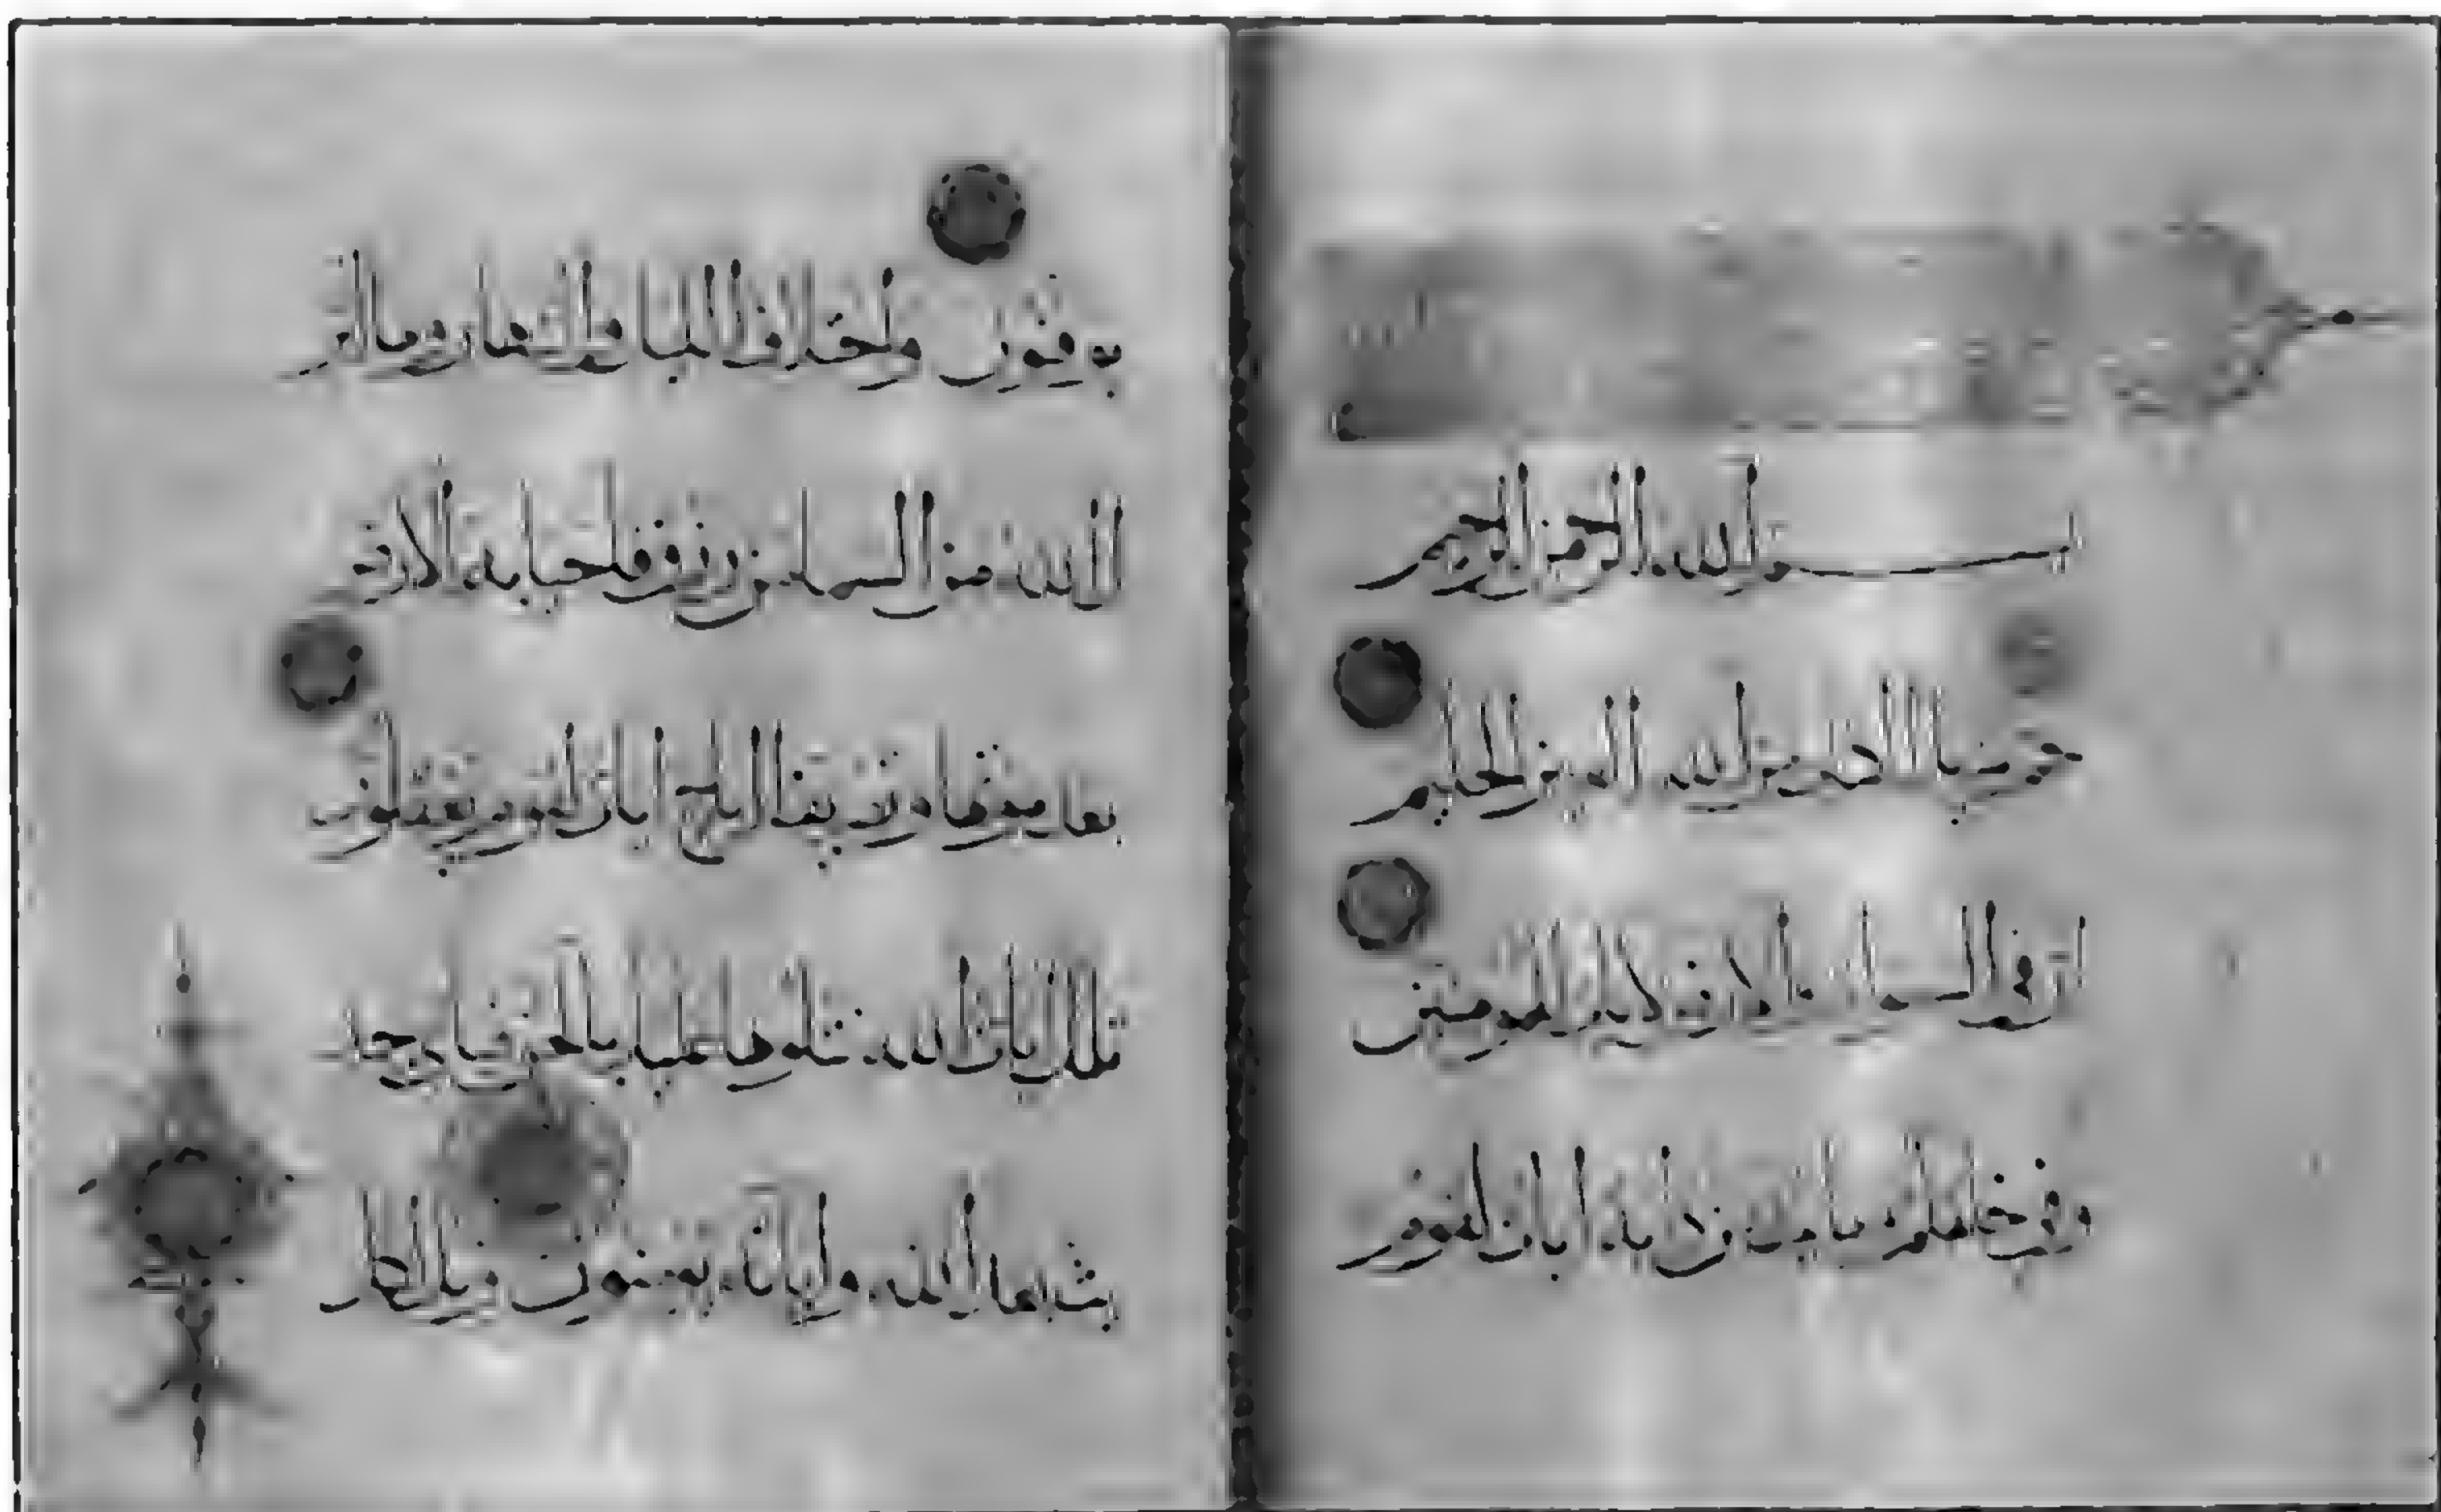 بسم الله الرحمن الرحيم
حم تنزيل الكتاب من الله العزيز الحكيم
ان في السموات والارض لايات للمومنين
وفي خلقكم وما يبث من دابة ايات لقوم
يوقنون واختلاف الليل والنهار وما انزل
الله من السما من رزق فاحيا به الارض
بعد موتها وتصريف الرياح ايات لقوم يعقلون
تلك ايات الله نتلوها عليك بالحق فباي حديث
بعد الله واياته يومنون ويل لكل